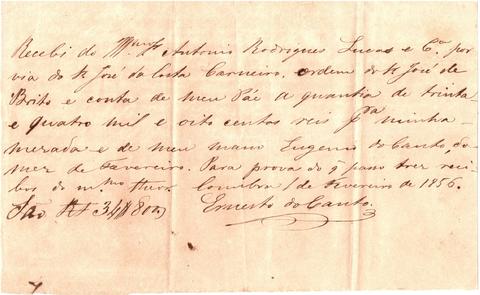 Recebi do Illmo Sr Antonio Rodrigues Lucas e Ca. por
via do Sr José da Costa Carneiro, ordem do Sr José de
Brito e conta de meu Páe a quantia de trinta
e quatro mil e oito centos reis pa minha
mezada e de meu mano Eugenio do Canto, do
mez de Fevereiro. Para prova do q passo trez reci-
bos do mmo theor. Coimbra 1 de Fevereiro de 1856.
São Rs 34$800
Ernesto do Canto.